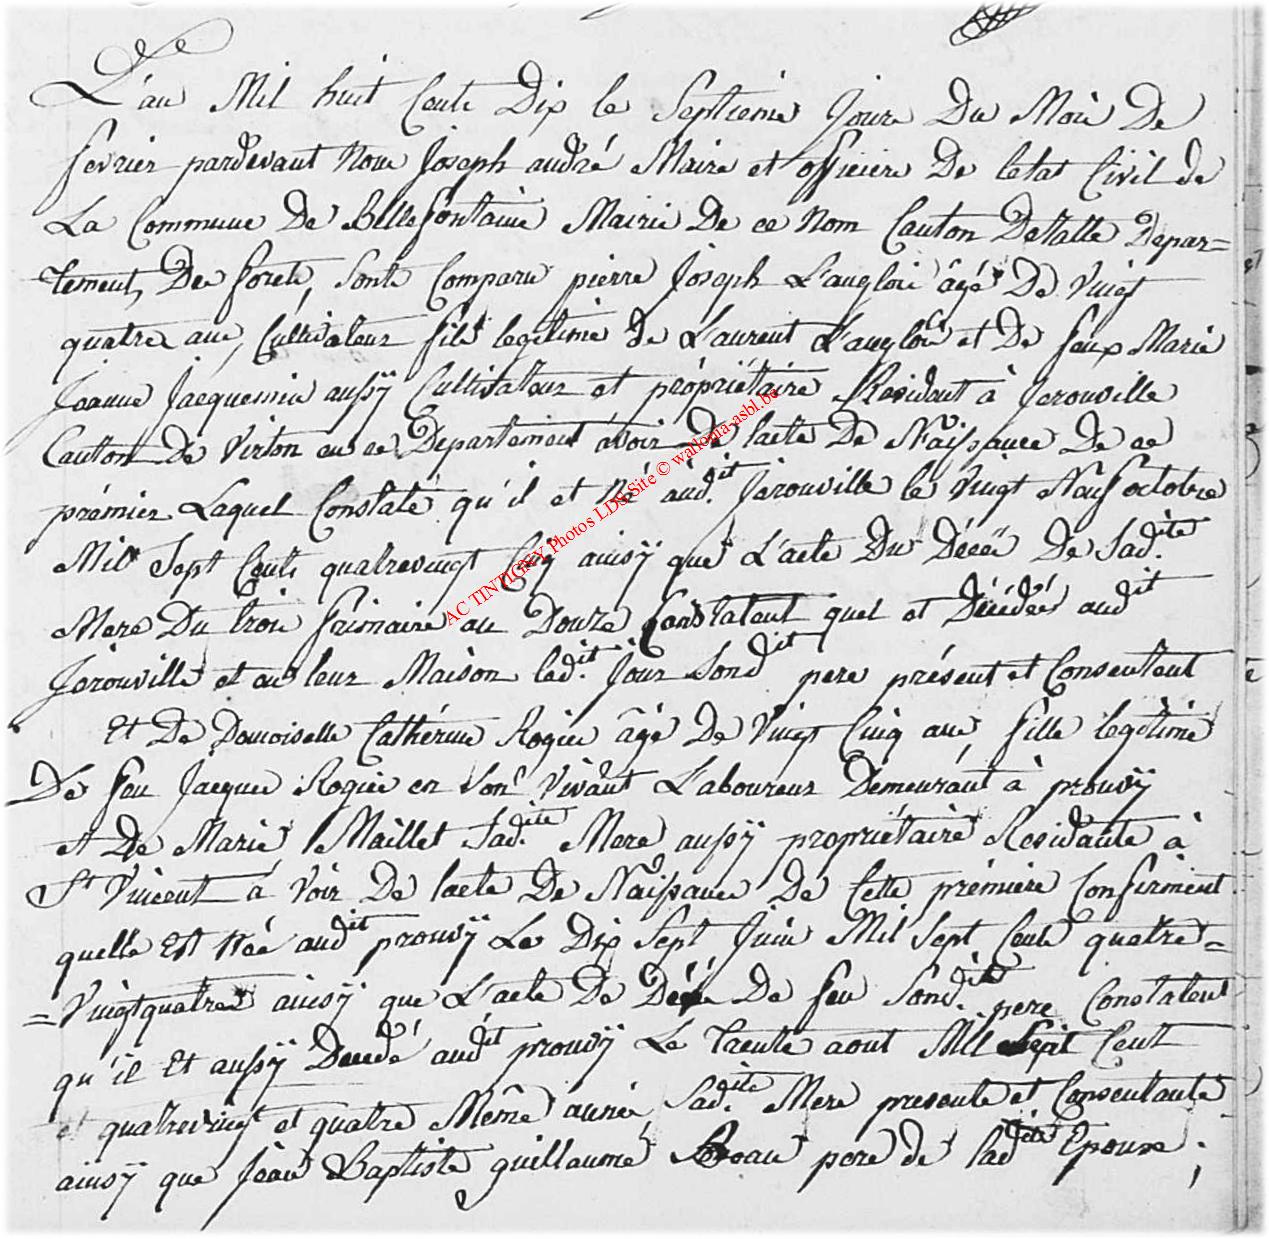 L'an Mil huit Cents Dix le Septieme Jour Du Mois De
fevrier pardevant Nous Joseph andré Maire et officiere De letat Civil de
La Commune De Bellefontaine Mairie De ce Nom Canton Detalle Depar=
tement, Des forets, sont Comparu pierre Joseph L'anglois âgé De Vingt
quatre ans, Cultivateur fils legitime de L'aurent L'anglois et De feux Marie
Jeanne Jacquemin aussÿ Cultivateur et propriétaire Résident à Jerouville
Canton De Virton en ce Departement avoir De lacte De Naissance De ce
prémier Laquel Constate qu'il et Né audit Jerouville le Vingt Neuf octobre
Mil Sept Cents quatrevingt Cinq ainsÿ que L'acte Du Décès De Sadite
Mere Du trois frimaire an Douze Constatent quel et Décédés audit
Jerouville et en leur Maison ledit Jour Sondit pere présent et Consentent
Et De Demoiselle Cathérine Rogier âgé De Vingt Cinq ans, fille legitime
De feu Jacque Rogier en son Vivant L'aboureur Demeurant à prouvÿ
et De Marie Maillet Sadite Mere aussÿ propriétaire Résidante à
St Vincent à Voir De lacte De Naissance De Cette première Confirment
quelle Est Née audit prouvÿ Le Dix Sept Juin Mil Sept Cents quatre=
=Vingtquatre ainsÿ que L'acte De Décès De feu Sondite pere Constatent
qu'il Et aussÿ Decedé audit prouvÿ Le Trente aout Mil Sept Cent
et quatrevingt et quatre Même année, Sadite Mere presente et Consentante
ainsÿ que Jean Baptiste guillaume Beau pere de ladite Epouse ;
AC TINTIGNY Photos LDS Site © wallonia-asbl.be